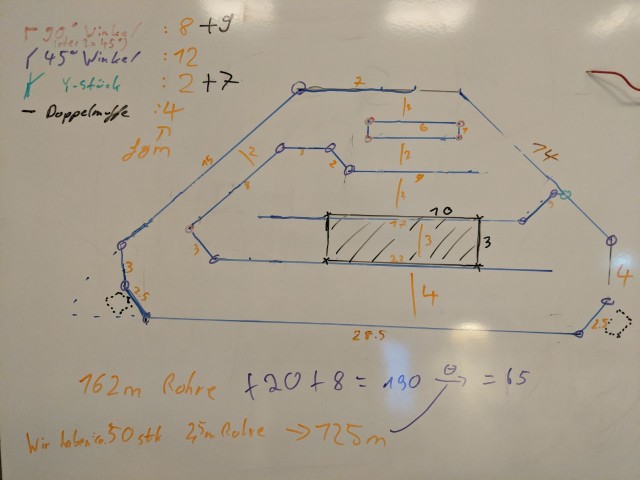 90° Winkel : 8 + 9
(oder 2x 45°)
45° Winkel : 12
Y-Stück : 2 + 7
Doppelmuffe : 4
7
14
15
2
3
6
1
2
1
2
8
9
2
3
10
17
3
3
22
3
3
2.5
4
4
2.5
28.5
162m Rohre + 20 + 8 = 190 = 65
Wir haben ca. 50 stk 2,5m Rohre → 125m